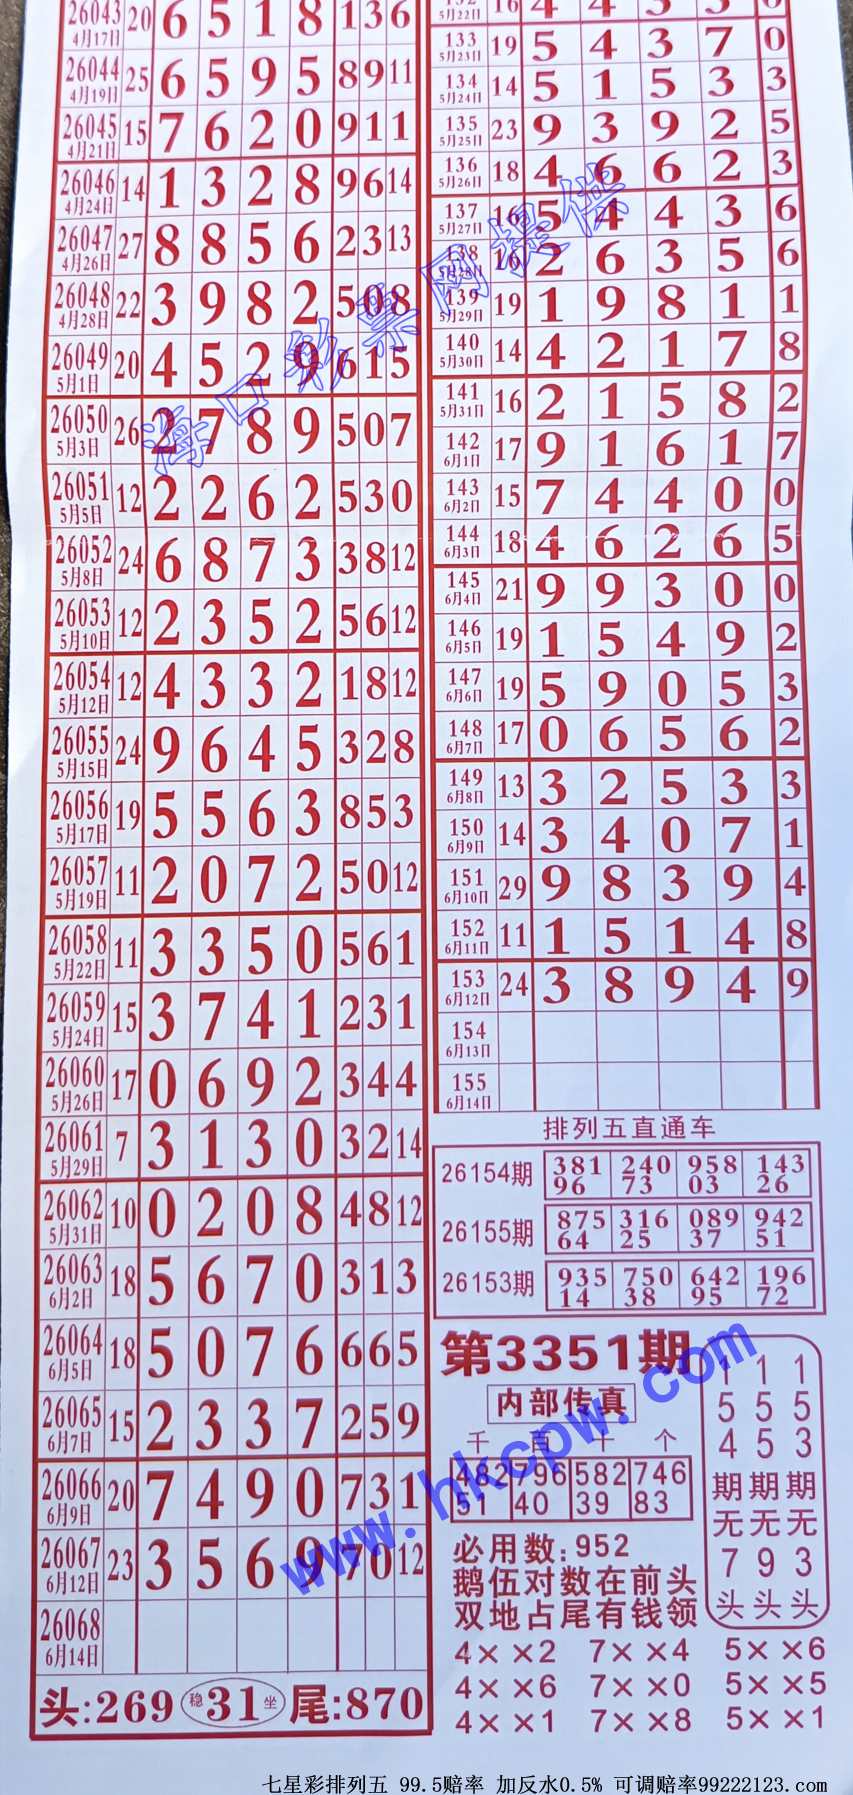 26043 4月17日 20 6 5 1 8 1 3 6
26044 4月19日 25 6 5 9 5 8 9 11
26045 4月21日 15 7 6 2 0 9 1 1
26046 4月24日 14 1 3 2 8 9 6 14
26047 4月26日 27 8 8 5 6 2 3 13
26048 4月28日 22 3 9 8 2 5 0 8
26049 5月1日 20 4 5 2 9 6 1 5
26050 5月3日 26 2 7 8 9 5 0 7
26051 5月5日 12 2 2 6 2 5 3 0
26052 5月8日 24 6 8 7 3 3 8 12
26053 5月10日 12 2 3 5 2 5 6 12
26054 5月12日 12 4 3 3 2 1 8 12
26055 5月15日 24 9 6 4 5 3 2 8
26056 5月17日 19 5 5 6 3 8 5 3
26057 5月19日 11 2 0 7 2 5 0 12
26058 5月22日 11 3 3 5 0 5 6 1
26059 5月24日 15 3 7 4 1 2 3 1
26060 5月26日 17 0 6 9 2 3 4 4
26061 5月29日 7 3 1 3 0 3 2 14
26062 5月31日 10 0 2 0 8 4 8 12
26063 6月2日 18 5 6 7 0 3 1 3
26064 6月5日 18 5 0 7 6 6 6 5
26065 6月7日 15 2 3 3 7 2 5 9
26066 6月9日 20 7 4 9 0 7 3 1
26067 6月12日 23 3 5 6 9 7 0 12
26068 6月14日
头:269 稳 31 坐 尾:870
5月22日 16
133 5月23日 19 5 4 3 7 0
134 5月24日 14 5 1 5 3 3
135 5月25日 23 9 3 9 2 5
136 5月26日 18 4 6 6 2 3
137 5月27日 16 5 4 4 3 6
138 5月28日 16 2 6 3 5 6
139 5月29日 19 1 9 8 1 1
140 5月30日 14 4 2 1 7 8
141 5月31日 16 2 1 5 8 2
142 6月1日 17 9 1 6 1 7
143 6月2日 15 7 4 4 0 0
144 6月3日 18 4 6 2 6 5
145 6月4日 21 9 9 3 0 0
146 6月5日 19 1 5 4 9 2
147 6月6日 19 5 9 0 5 3
148 6月7日 17 0 6 5 6 2
149 6月8日 13 3 2 5 3 3
150 6月9日 14 3 4 0 7 1
151 6月10日 29 9 8 3 9 4
152 6月11日 11 1 5 1 4 8
153 6月12日 24 3 8 9 4 9
154 6月13日
155 6月14日
排列五直通车
26154期 381 240 958 143
96 73 03 26
26155期 875 316 089 942
64 25 37 51
26153期 935 750 642 196
14 38 95 72
第3351期
内部传真
千 百 十 个
482 796 582 746
51 40 39 83
必用数:952
鹅伍对数在前头
双地占尾有钱领
154期无7头
155期无9头
153期无3头
4××2 7××4 5××6
4××6 7××0 5××5
4××1 7××8 5××1
海口彩票网提供
www.hkcpw.com
七星彩排列五 99.5赔率 加反水0.5% 可调赔率99222123.com